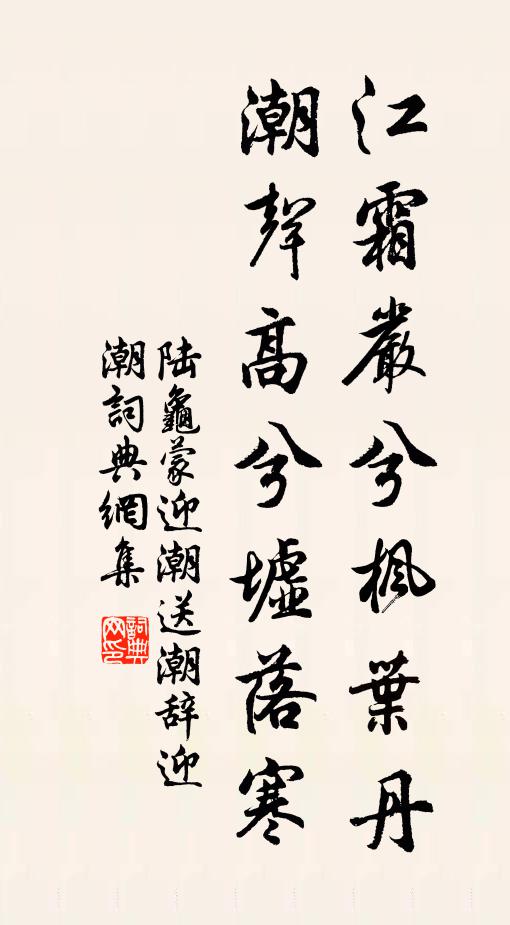 江霜嚴兮楓葉丹
潮聲高兮墟落寒
陸龜蒙迎潮送潮辞迎
潮詞典網集
詞典
网印